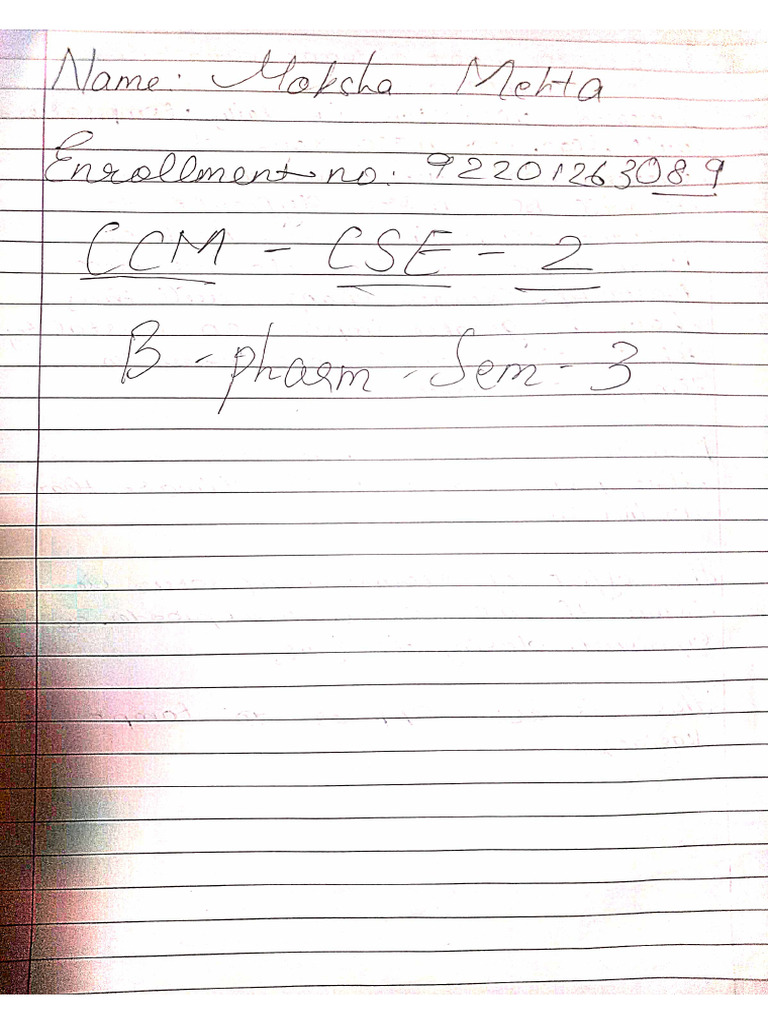 Name: Moksha Mehta
Enrollment no: 92201263089
CCM - CSE - 2
B - pharm - Sem - 3